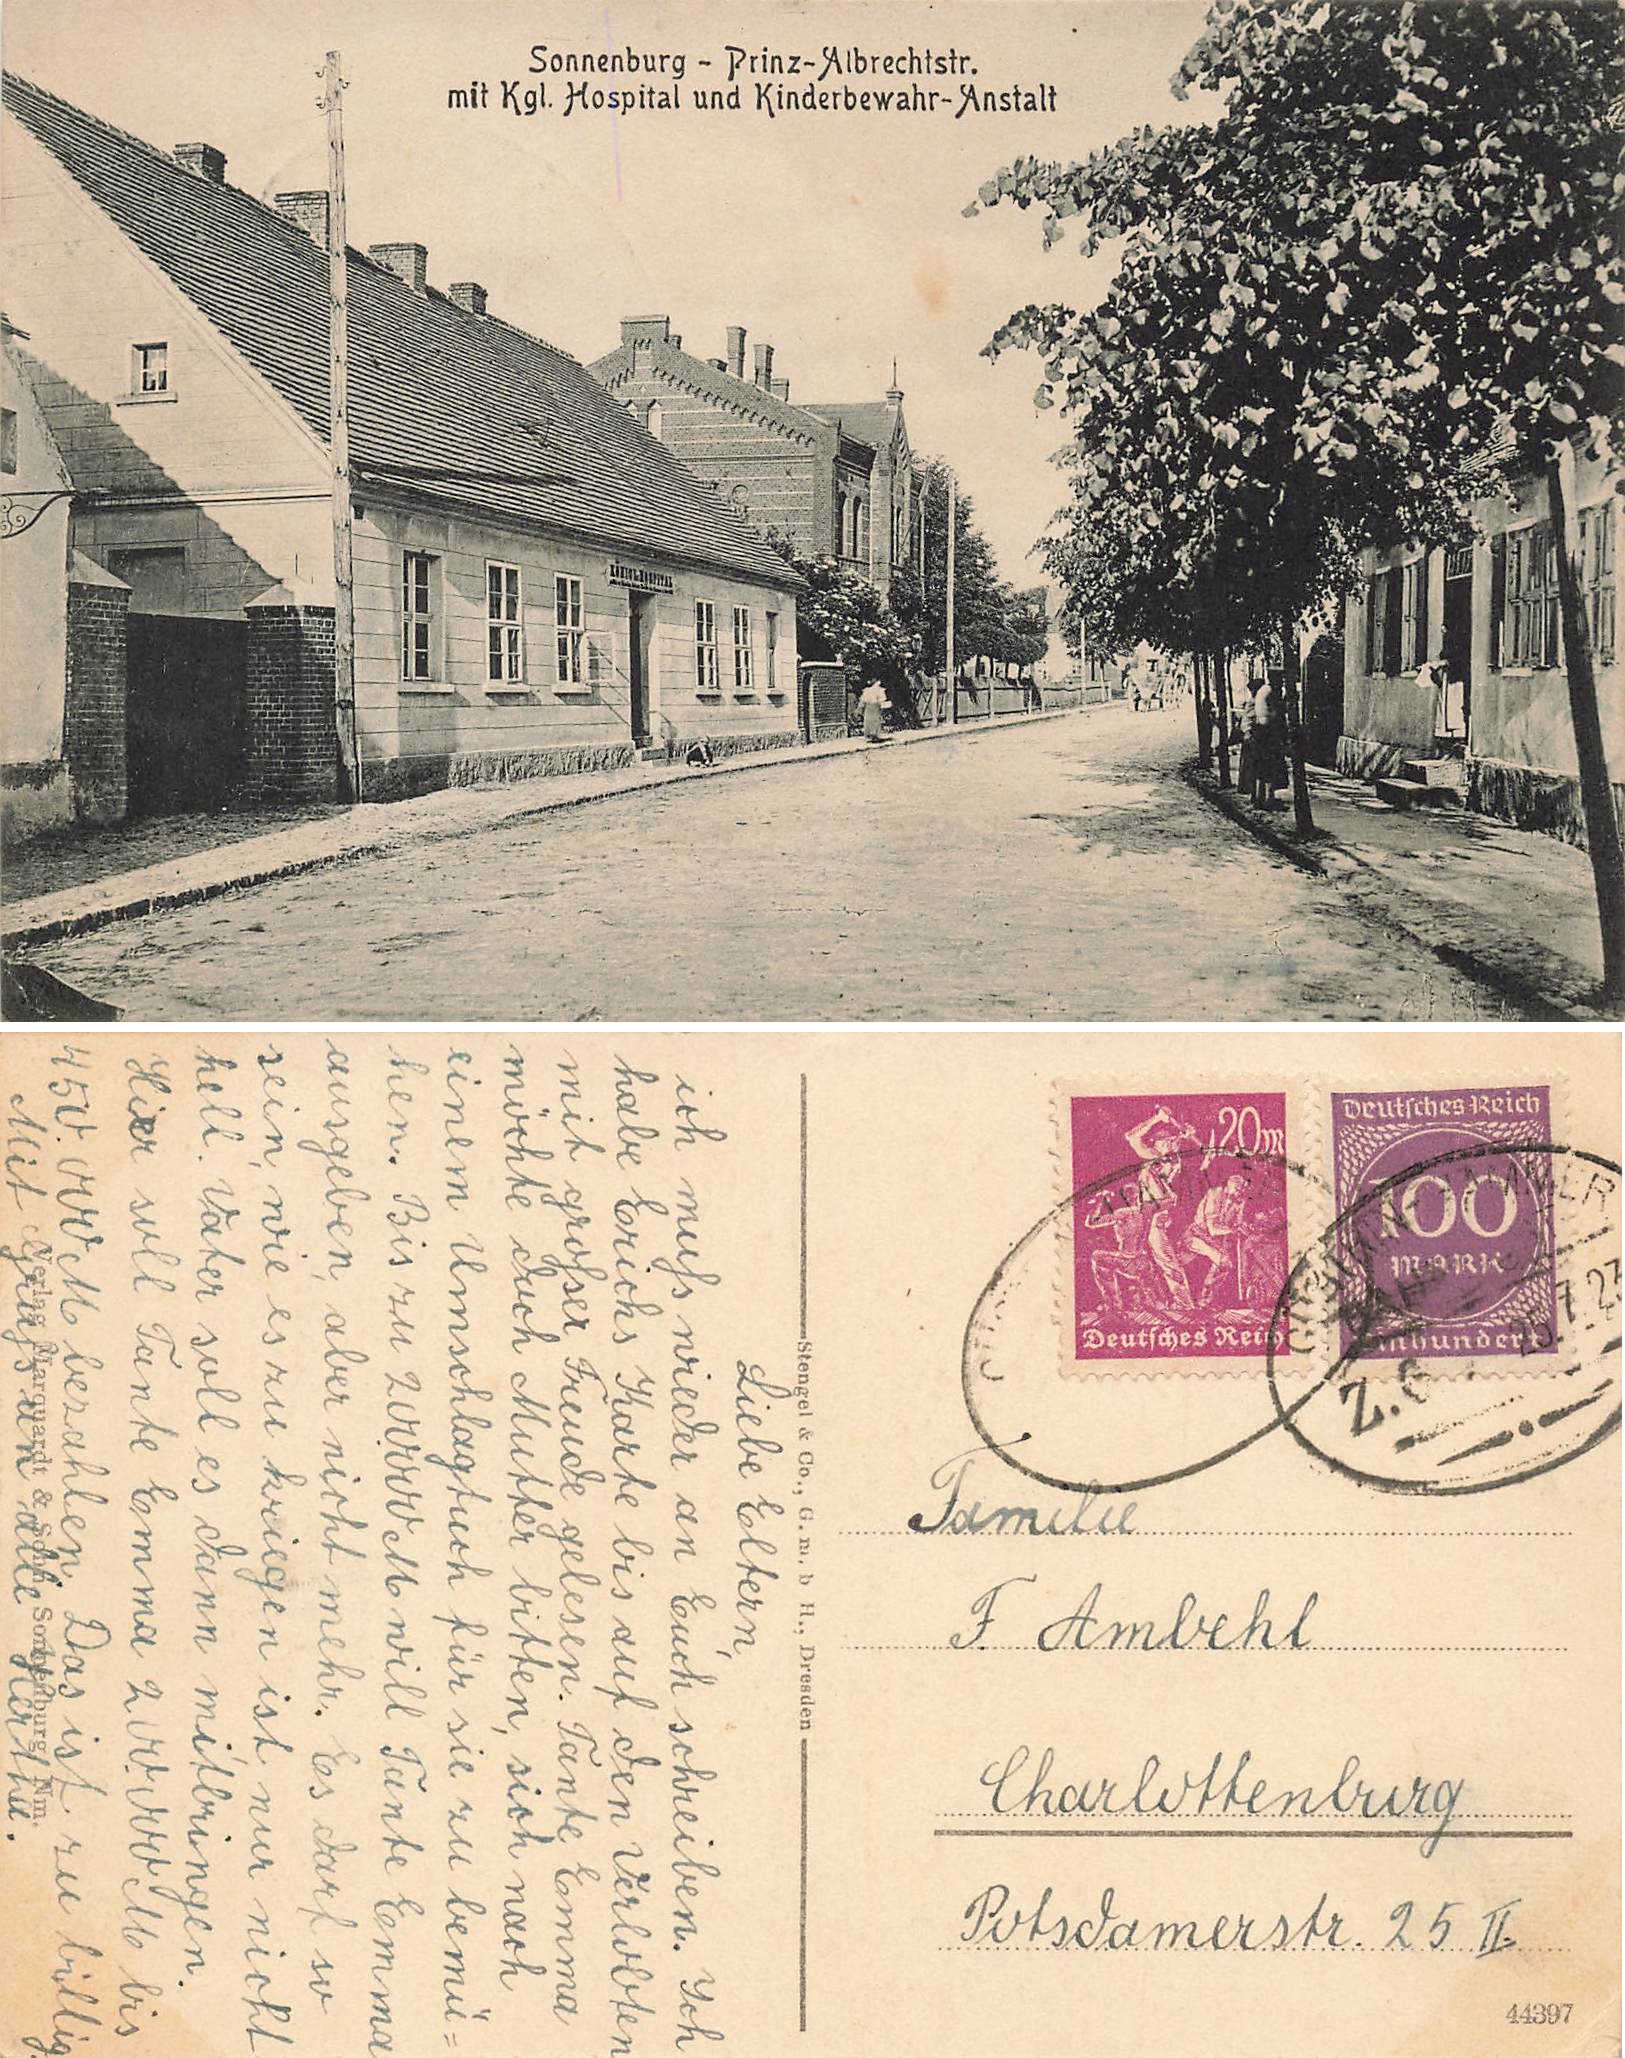 Sonnenburg - Prinz-Albrechtstr.
mit Kgl. Hospital und Kinderbewahr-Anstalt
KÖNIGL. HOSPITAL
Liebe Eltern,
ich muſs wieder an Euch schreiben. Ich
habe Erichs Karte bis auf den Verlobten
mit groſser Freude gelesen. Tante Emma
möchte duch Mutter bitten, sich nach
einem Umschlagtuch für sie zu bemü=
hen. Bis zu 200000 M will Tante Emma
ausgeben, aber nicht mehr. Es darf so
sein, wie es zu kriegen ist nur nicht
hell. Vater soll es dann mitbringen.
Hier soll Tante Emma 200.000 M bis
450.000 M bezahlen. Das ist zu billig.
Mit Gruſs an alle Hertha.
Verlag Marquardt & Sohn, Sonnenburg Nm.
Stengel & Co., G. m. b H., Dresden
20m
Deutsches Reich
Deutsches Reich
100
MARK
Einhundert
25.7.23
Familie
F. Ambehl
Charlottenburg
Potsdamerstr. 25 II.
44397